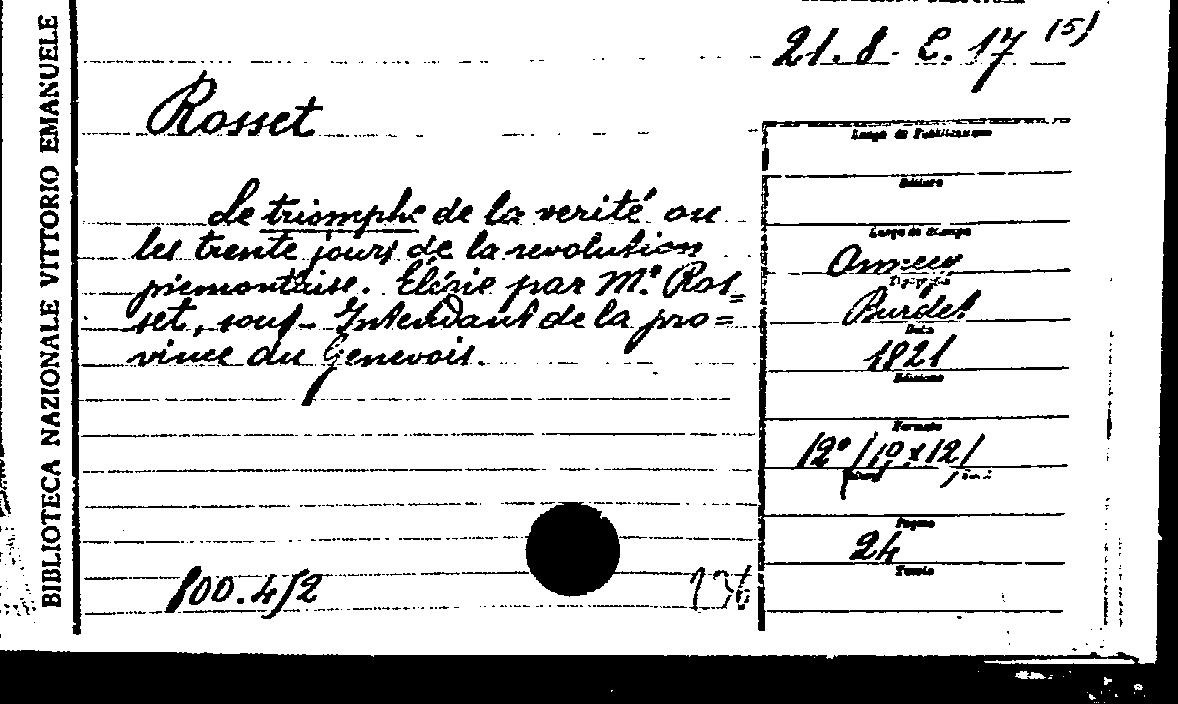 BIBLIOTECA NAZIONALE VITTORIO EMANUELE
21. 8. C. 17 (5)
Rosset
Le triomphe de la verité ou
les trente jours de la revolution
piemontaise. Élégie par M.r Ros=
set, sous-Intendant de la pro=
vince du Genevois.
800.4/2
136
Luogo di Pubblicazione
Editore
Luogo di Stampa
Annecy
Tipografia
Burdet
Data
1821
Edizione
Formato
12°
Pagine
24
Tavole